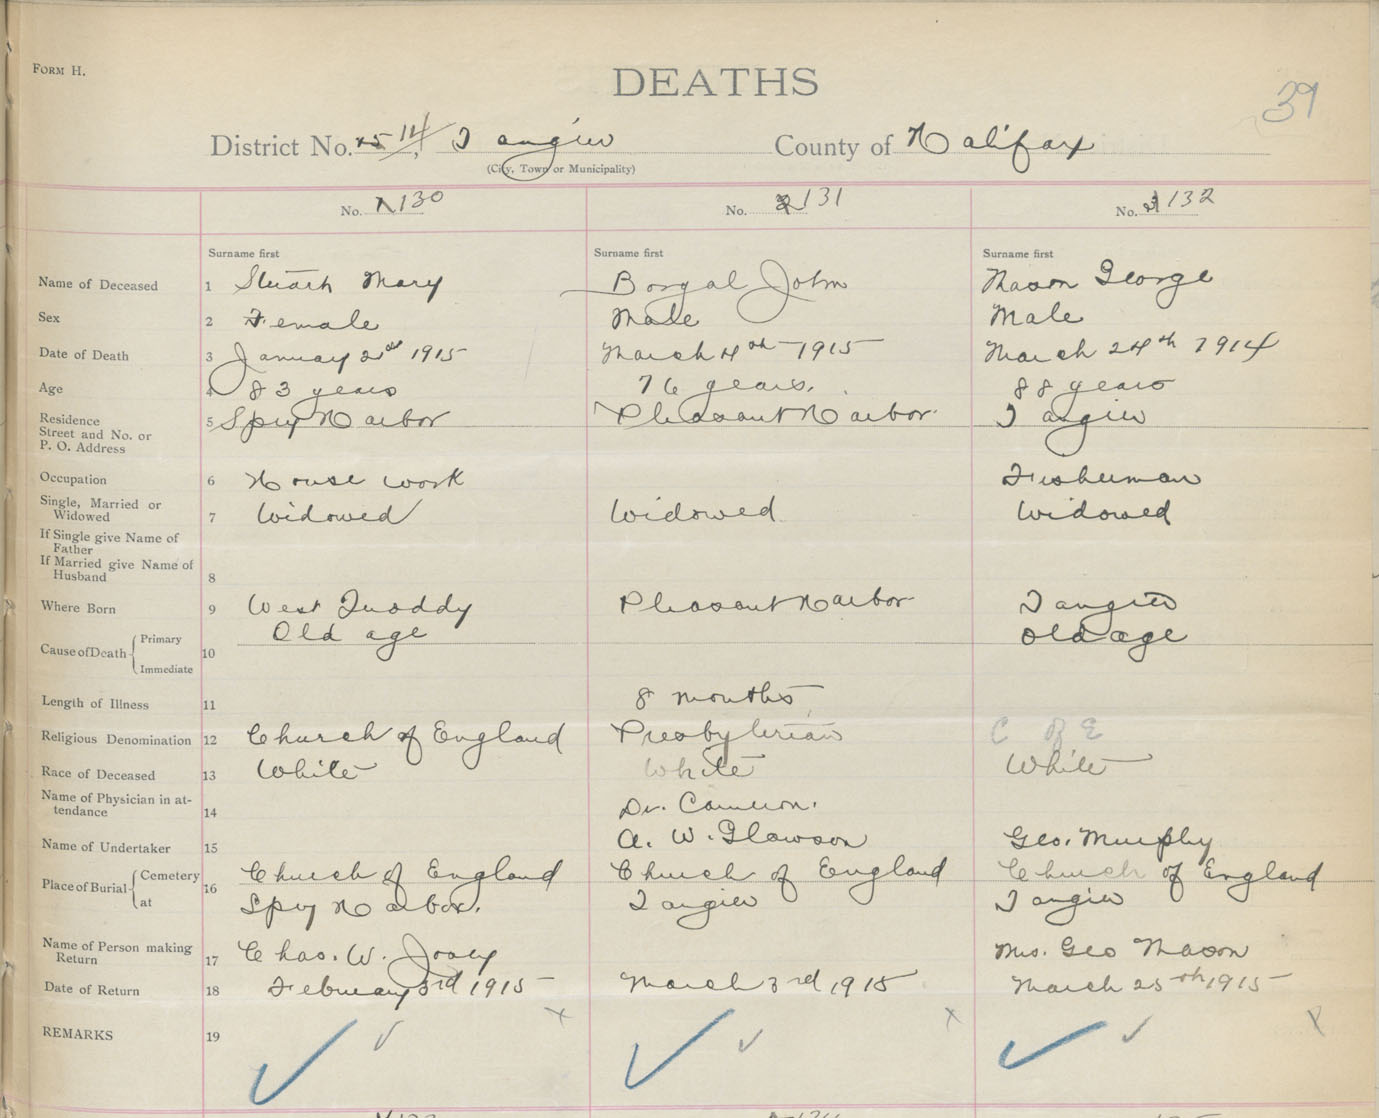 FORM H.
DEATHS
39
District No. 14, Tangier County of Halifax
(City, Town or Municipality)
No. 130 No. 131 No. 132
Surname first Surname first Surname first
Name of Deceased 1 Stuart Mary Borgal John Mason George
Sex 2 Female Male Male
Date of Death 3 January 1915 March 4th 1915 March 24th 1914
Age 4 83 years 76 years. 88 years
Residence
Street and No. or
P. O. Address
5 Spry Harbor Pleasant Harbor. Tangier
Occupation 6 House work Fisherman
Single, Married or
Widowed 7 Widowed Widowed Widowed
If Single give Name of
Father
If Married give Name of
Husband 8
Where Born 9 West Quoddy Pleasant Harbor Tangier
Cause of Death Primary Old age Old age
Immediate 10
Length of Illness 11 8 months
Religious Denomination 12 Church of England Presbyterian C of E
Race of Deceased 13 White White White
Name of Physician in at-
tendance 14 Dr. Cameron.
Name of Undertaker 15 A. W. Glawson Geo. Murphy
Place of Burial Cemetery 16 Church of England Church of England Church of England
at Spry Harbor. Tangier Tangier
Name of Person making
Return 17 Chas. W. Mrs. Geo Mason
Date of Return 18 February 3rd 1915 March 3rd 1915 March 25th 1915
REMARKS 19